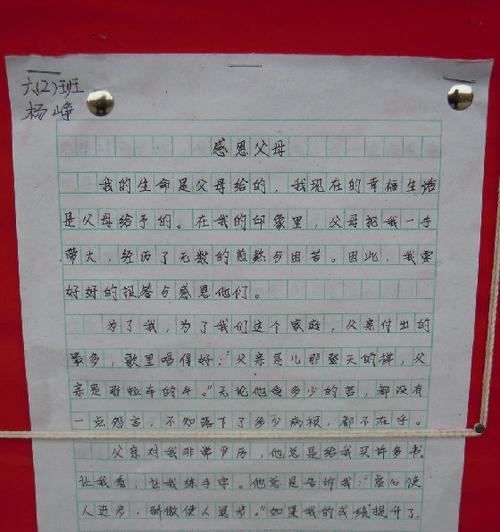 六(2)班
杨峥
感恩父母
我的生命是父母给的,我现在的幸福生活
是父母给予的。在我的印象里,父母把我一手
带大,经历了无数的煎熬与困苦。因此,我要
好好的报答与感恩他们。
为了我,为了我们这个家庭,父亲付出的
最多,歌里唱得好:“父亲是儿那登天的梯,父
亲是那拉车的牛。”无论他受多少的苦,都没有
一点怨言,不知落下了多少病根,都不在乎。
父亲对我非常严厉,他总是给我买许多书
让我看,让我练字。他总是告诉我:“虚心使
人进步,骄傲使人退步。”如果我的成绩提升了